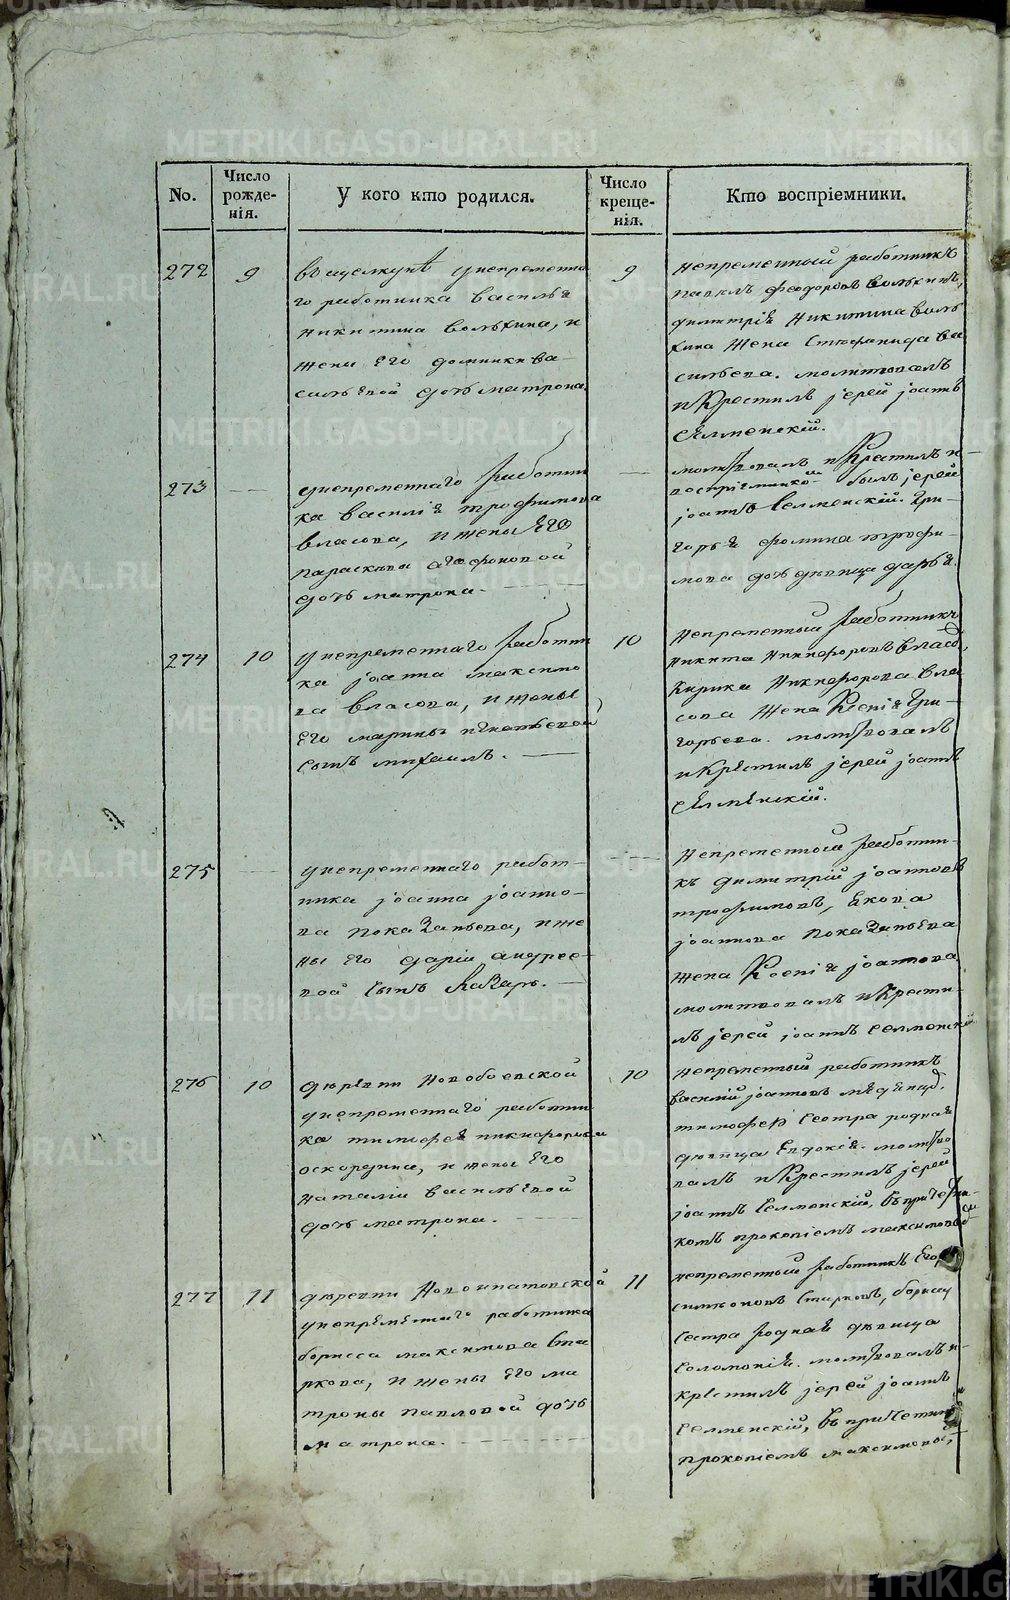 No.
Число рожде- нія.
У кого кто родился.
Число креще- нія.
Кто воспріемники.
272
9
въ щелкунѣ у непременна
го работника василья
никитина вольхина, и
жены его домники ва-
сильевой дочь матрона
9
непременный работникъ
павелъ феодоровъ вольхинъ,
димитрія никитина воль
хина жена стефанида ва
сильева. молитвовалъ
и крестилъ іерей іоаннъ
селменскій.
273
у непременнаго работни
ка василія трофимова
власова, и жены его
параскевы агафоновой
дочь матрона.
молитвовалъ и крестилъ и
воспріемникомъ былъ іерей
іоаннъ селменскій. гри-
горья фомина трофи-
мова дочь девица дарья.
274
10
у непременнаго работни
ка іоанна максимо
ва власова, и жены
его марины игнатьевой
сынъ михаилъ.
10
непременный работникъ
никита никифоровъ власо
кирика никифорова вла
сова жена ксенія гри-
горьева. молитвовалъ
и крестилъ іерей іоаннъ
селменскій.
275
у непременнаго работ-
ника іоанна іоанно-
ва показаньева, и же
ны его даріи андрее-
вой сынъ лазарь.
непременной работни-
къ димитрій іоанновъ
трофимовъ, якова
іоаннова показаньева
жена ксенія іоаннова
молитвовалъ и крести-
лъ іерей іоаннъ селменскій
276
10
деревни новобоевской
у непременнаго работни
ка тимофея никифорова
оскордина, и жены его
наталіи васильевой
дочь матрона.
10
непременный работникъ
василій іоанновъ
тимофея сестра родная
девица евдокія. молитво
валъ и крестилъ іерей
іоаннъ селменскій, съ причетни-
комъ прокопіемъ максимовой
277
11
деревни новоипатовской
у непременнаго работника
бориса максимова ста
ркова, и жены его ма
троны павловой дочь
матрона.
11
непременный работникъ егор
симеоновъ старковъ, бориса
сестра родная девица
соломонія. молитвовалъ и
крестилъ іерей іоаннъ
селменскій, съ причетни
прокопіемъ
METRIKI.GASO-URAL.RU